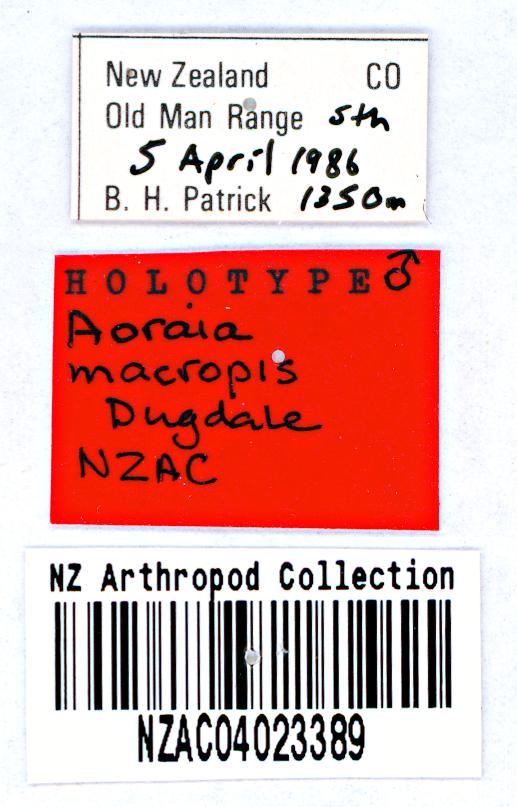 New Zealand CO
Old Man Range sth
5 April 1986
B. H. Patrick 1350m
HOLOTYPE♂
Aoraia
macropis
Dugdale
NZAC
NZ Arthropod Collection
NZAC04023389